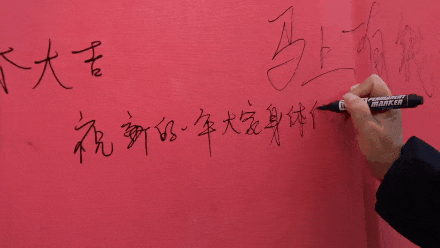 大吉
马上有钱
祝新的一年大家身体
PERMANENT
MARKER